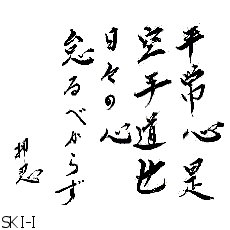 平常心是
空手道也
日々の心
怠るべからず
SKI-I